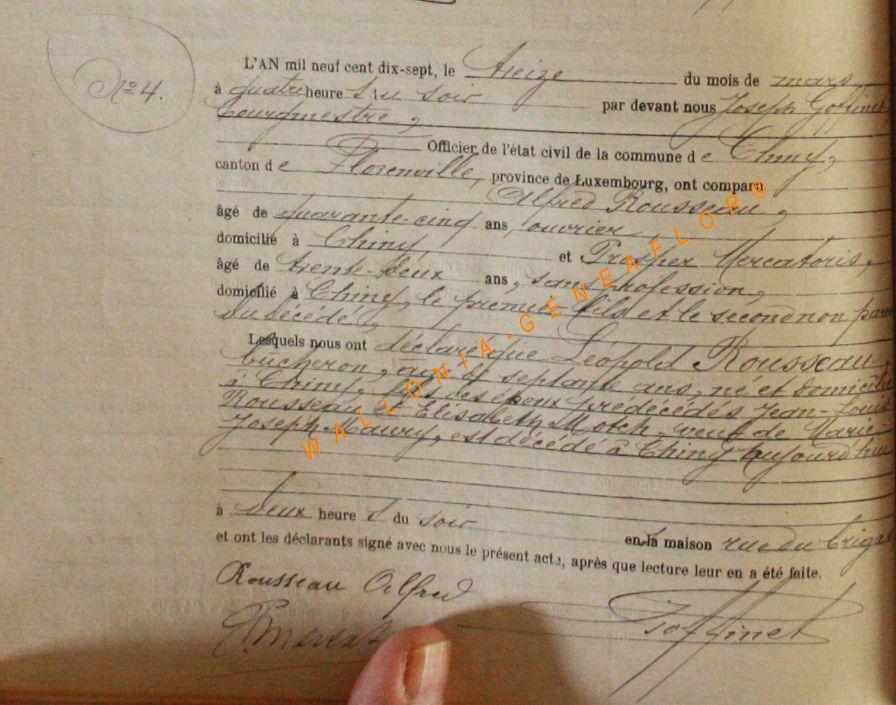 N° 4.
L'AN mil neuf cent dix-sept, le treize du mois de mars
à quatre heure s du soir par devant nous Joseph Goffinet
bourgmestre,
Officier de l'état civil de la commune d e Chiny,
canton d e Florenville, province de Luxembourg, ont comparu
Alfred Rousseau,
âgé de quarante-cinq ans, ouvrier
domicilié à Chiny et Prosper Mercatoris,
âgé de trente-deux ans, sans profession,
domicilié à Chiny, le premier fils et le second non parent
du décédé,
Lesquels nous ont déclaré que Léopold Rousseau
bûcheron, âgé de septante ans, né et domicilié
à Chiny, fils des époux prédécédés Jean-Louis
Rousseau et Elisabeth Motch, veuf de Marie-
Joseph Maury, est décédé à Chiny aujourd'hui
à deux heure s du soir en la maison rue du
et ont les déclarants signé avec nous le présent acte, après que lecture leur en a été faite.
Rousseau Alfred
Goffinet
WALLONIA-GENEAELOR®